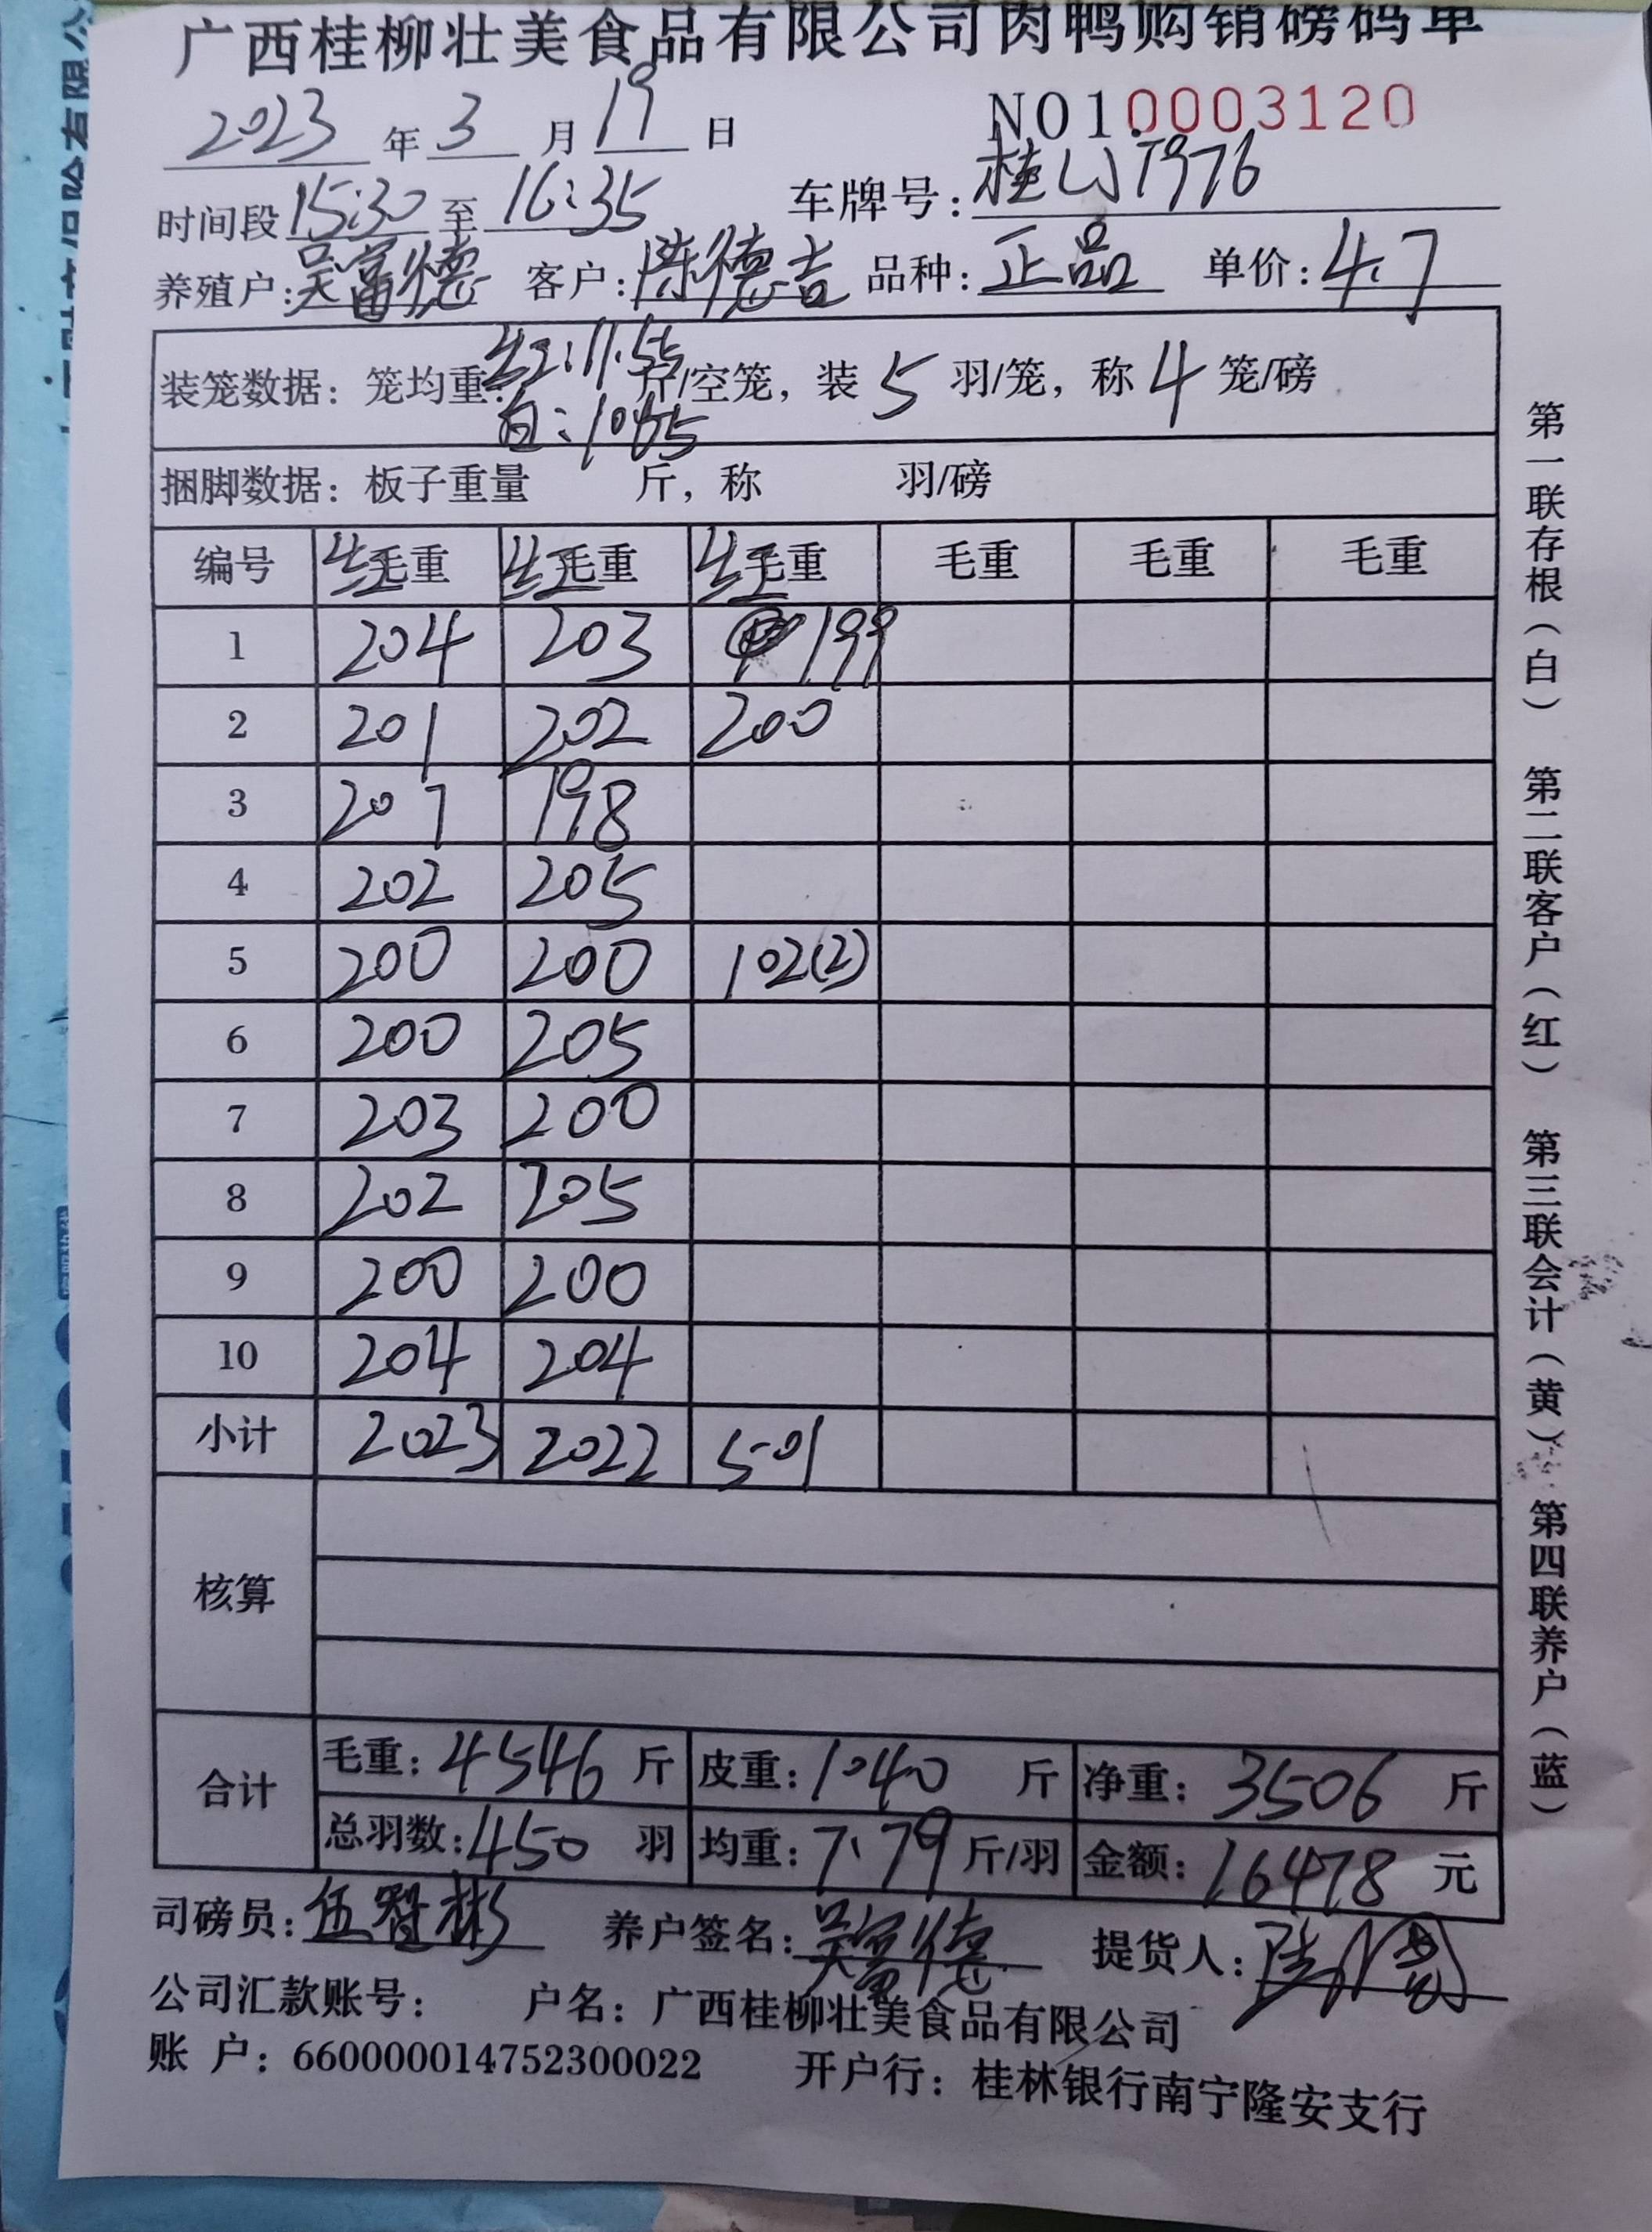 广西桂柳壮美食品有限公司肉鸭购销磅码单
2023 年 3 月 19 日 NO10003120
时间段 15:30 至 16:35 车牌号: 桂 1976
养殖户: 吴富德 客户: 陈德吉 品种: 正品 单价: 4.7
红:11.55
装笼数据: 笼均重: 斤/空笼, 装 5 羽/笼, 称 4 笼/磅
白:
捆脚数据: 板子重量 斤, 称 羽/磅
编号 红毛重 红毛重 红毛重 毛重 毛重 毛重
1 204 203 199
2 201 202 200
3 207 198
4 202 205
5 200 200 102(2)
6 200 205
7 203 200
8 202 205
9 200 200
10 204 204
小计 2023 2022 501
核算
合计 毛重: 4546 斤 皮重: 1040 斤 净重: 3506 斤
总羽数: 450 羽 均重: 7.79 斤/羽 金额: 16478 元
司磅员: 伍智彬 养户签名: 吴富德 提货人:
公司汇款账号: 户名: 广西桂柳壮美食品有限公司
账 户: 660000014752300022 开户行: 桂林银行南宁隆安支行
第一联存根(白) 第二联客户(红) 第三联会计(黄) 第四联养户(蓝)